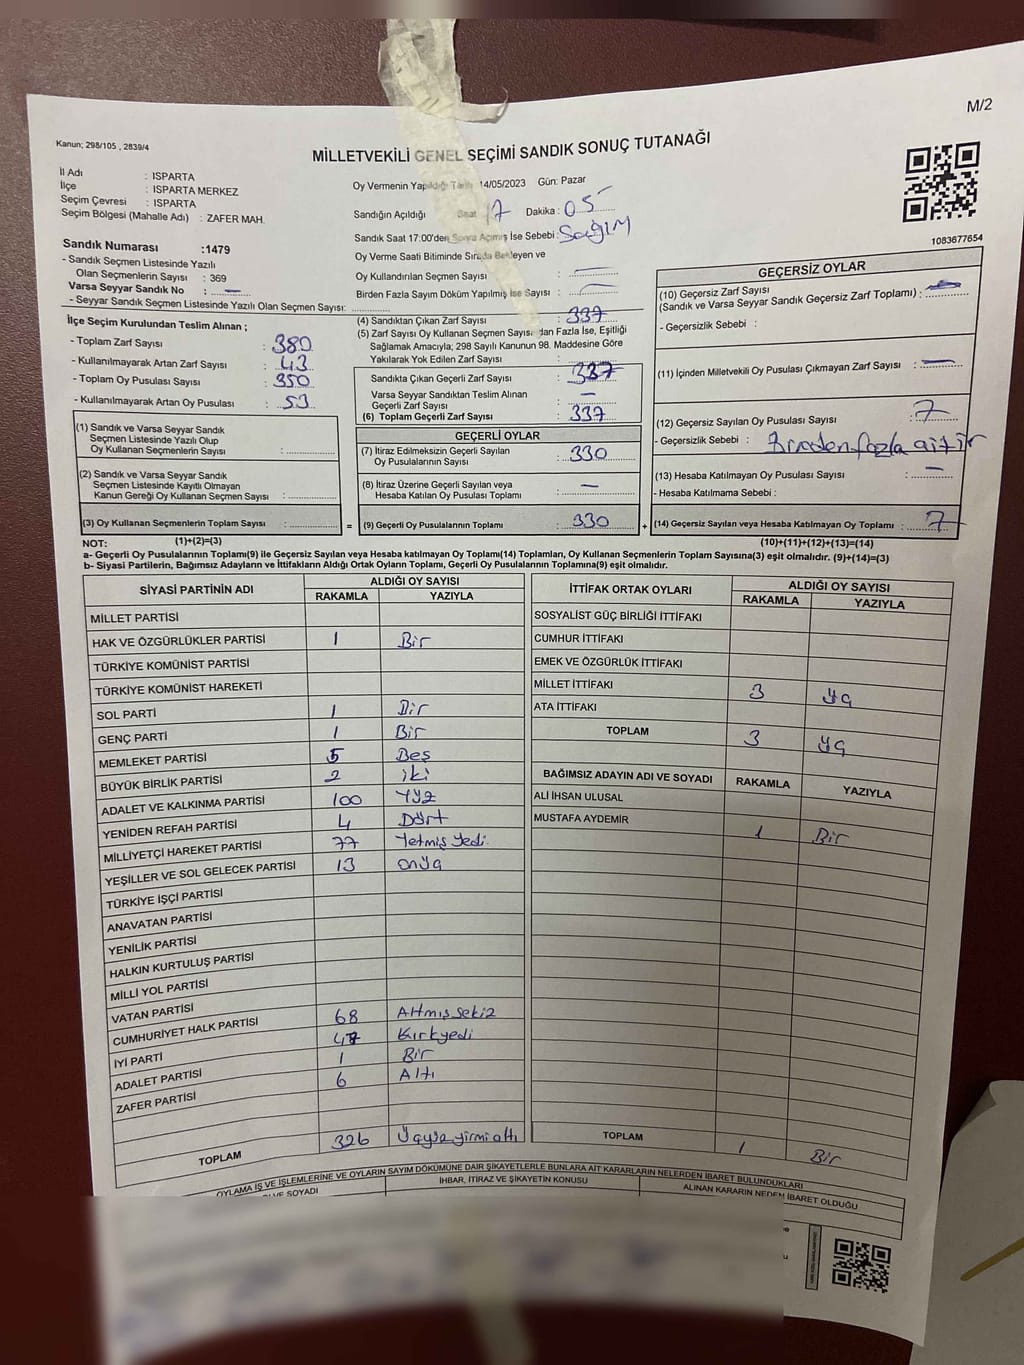 M/2
Kanun; 298/105 , 2839/4
MİLLETVEKİLİ GENEL SEÇİMİ SANDIK SONUÇ TUTANAĞI
İl Adı : ISPARTA
İlçe : ISPARTA MERKEZ
Seçim Çevresi : ISPARTA
Seçim Bölgesi (Mahalle Adı) : ZAFER MAH.
Oy Vermenin Yapıldığı Tarih 14/05/2023 Gün: Pazar
Sandığın Açıldığı Saat 17 Dakika : 05
Sandık Saat 17:00'den Sonra Açımış İse Sebebi : Sağım
Oy Verme Saati Bitiminde Sırada Bekleyen ve
Oy Kullandırılan Seçmen Sayısı : —
Birden Fazla Sayım Döküm Yapılmış İse Sayısı : —
1083677654
Sandık Numarası :1479
- Sandık Seçmen Listesinde Yazılı
Olan Seçmenlerin Sayısı : 369
Varsa Seyyar Sandık No : —
- Seyyar Sandık Seçmen Listesinde Yazılı Olan Seçmen Sayısı:
İlçe Seçim Kurulundan Teslim Alınan ;
- Toplam Zarf Sayısı : 380
- Kullanılmayarak Artan Zarf Sayısı : 43
- Toplam Oy Pusulası Sayısı : 350
- Kullanılmayarak Artan Oy Pusulası : 53
(1) Sandık ve Varsa Seyyar Sandık
Seçmen Listesinde Yazılı Olup
Oy Kullanan Seçmenlerin Sayısı :
(2) Sandık ve Varsa Seyyar Sandık
Seçmen Listesinde Kayıtlı Olmayan
Kanun Gereği Oy Kullanan Seçmen Sayısı :
(3) Oy Kullanan Seçmenlerin Toplam Sayısı :
(1)+(2)=(3)
(4) Sandıktan Çıkan Zarf Sayısı : 337
(5) Zarf Sayısı Oy Kullanan Seçmen Sayısından Fazla İse, Eşitliği
Sağlamak Amacıyla; 298 Sayılı Kanunun 98. Maddesine Göre
Yakılarak Yok Edilen Zarf Sayısı :
Sandıkta Çıkan Geçerli Zarf Sayısı : 337
Varsa Seyyar Sandıktan Teslim Alınan
Geçerli Zarf Sayısı : —
(6) Toplam Geçerli Zarf Sayısı : 337
GEÇERLİ OYLAR
(7) İtiraz Edilmeksizin Geçerli Sayılan
Oy Pusulalarının Sayısı : 330
(8) İtiraz Üzerine Geçerli Sayılan veya
Hesaba Katılan Oy Pusulası Toplamı : —
= (9) Geçerli Oy Pusulalarının Toplamı : 330
GEÇERSİZ OYLAR
(10) Geçersiz Zarf Sayısı
(Sandık ve Varsa Seyyar Sandık Geçersiz Zarf Toplamı) : —
- Geçersizlik Sebebi :
(11) İçinden Milletvekili Oy Pusulası Çıkmayan Zarf Sayısı : —
(12) Geçersiz Sayılan Oy Pusulası Sayısı : 7
- Geçersizlik Sebebi : Birden fazla aittir
(13) Hesaba Katılmayan Oy Pusulası Sayısı : —
- Hesaba Katılmama Sebebi :
+ (14) Geçersiz Sayılan veya Hesaba Katılmayan Oy Toplamı : 7
(10)+(11)+(12)+(13)=(14)
NOT:
a- Geçerli Oy Pusulalarının Toplamı(9) ile Geçersiz Sayılan veya Hesaba katılmayan Oy Toplamı(14) Toplamları, Oy Kullanan Seçmenlerin Toplam Sayısına(3) eşit olmalıdır. (9)+(14)=(3)
b- Siyasi Partilerin, Bağımsız Adayların ve İttifakların Aldığı Ortak Oyların Toplamı, Geçerli Oy Pusulalarının Toplamına(9) eşit olmalıdır.
SİYASİ PARTİNİN ADI ALDIĞI OY SAYISI
RAKAMLA YAZIYLA
MİLLET PARTİSİ
HAK VE ÖZGÜRLÜKLER PARTİSİ 1 Bir
TÜRKİYE KOMÜNİST PARTİSİ
TÜRKİYE KOMÜNİST HAREKETİ
SOL PARTİ 1 Bir
GENÇ PARTİ 1 Bir
MEMLEKET PARTİSİ 5 Beş
BÜYÜK BİRLİK PARTİSİ 2 iki
ADALET VE KALKINMA PARTİSİ 100 Yüz
YENİDEN REFAH PARTİSİ 4 Dört
MİLLİYETÇİ HAREKET PARTİSİ 77 Yetmiş yedi
YEŞİLLER VE SOL GELECEK PARTİSİ 13 onüç
TÜRKİYE İŞÇİ PARTİSİ
ANAVATAN PARTİSİ
YENİLİK PARTİSİ
HALKIN KURTULUŞ PARTİSİ
MİLLİ YOL PARTİSİ
VATAN PARTİSİ
CUMHURİYET HALK PARTİSİ 68 Altmış sekiz
İYİ PARTİ 47 Kırkyedi
ADALET PARTİSİ 1 Bir
ZAFER PARTİSİ 6 Altı
TOPLAM 326 Üçyüz yirmi altı
İTTİFAK ORTAK OYLARI ALDIĞI OY SAYISI
RAKAMLA YAZIYLA
SOSYALİST GÜÇ BİRLİĞİ İTTİFAKI
CUMHUR İTTİFAKI
EMEK VE ÖZGÜRLÜK İTTİFAKI
MİLLET İTTİFAKI 3 üç
ATA İTTİFAKI
TOPLAM 3 üç
BAĞIMSIZ ADAYIN ADI VE SOYADI RAKAMLA YAZIYLA
ALİ İHSAN ULUSAL
MUSTAFA AYDEMİR 1 Bir
TOPLAM 1 Bir
OYLAMA İŞ VE İŞLEMLERİNE VE OYLARIN SAYIM DÖKÜMÜNE DAİR ŞİKAYETLERLE BUNLARA AİT KARARLARIN NELERDEN İBARET BULUNDUKLARI
VE SOYADI İHBAR, İTİRAZ VE ŞİKAYETİN KONUSU ALINAN KARARIN NEDEN İBARET OLDUĞU